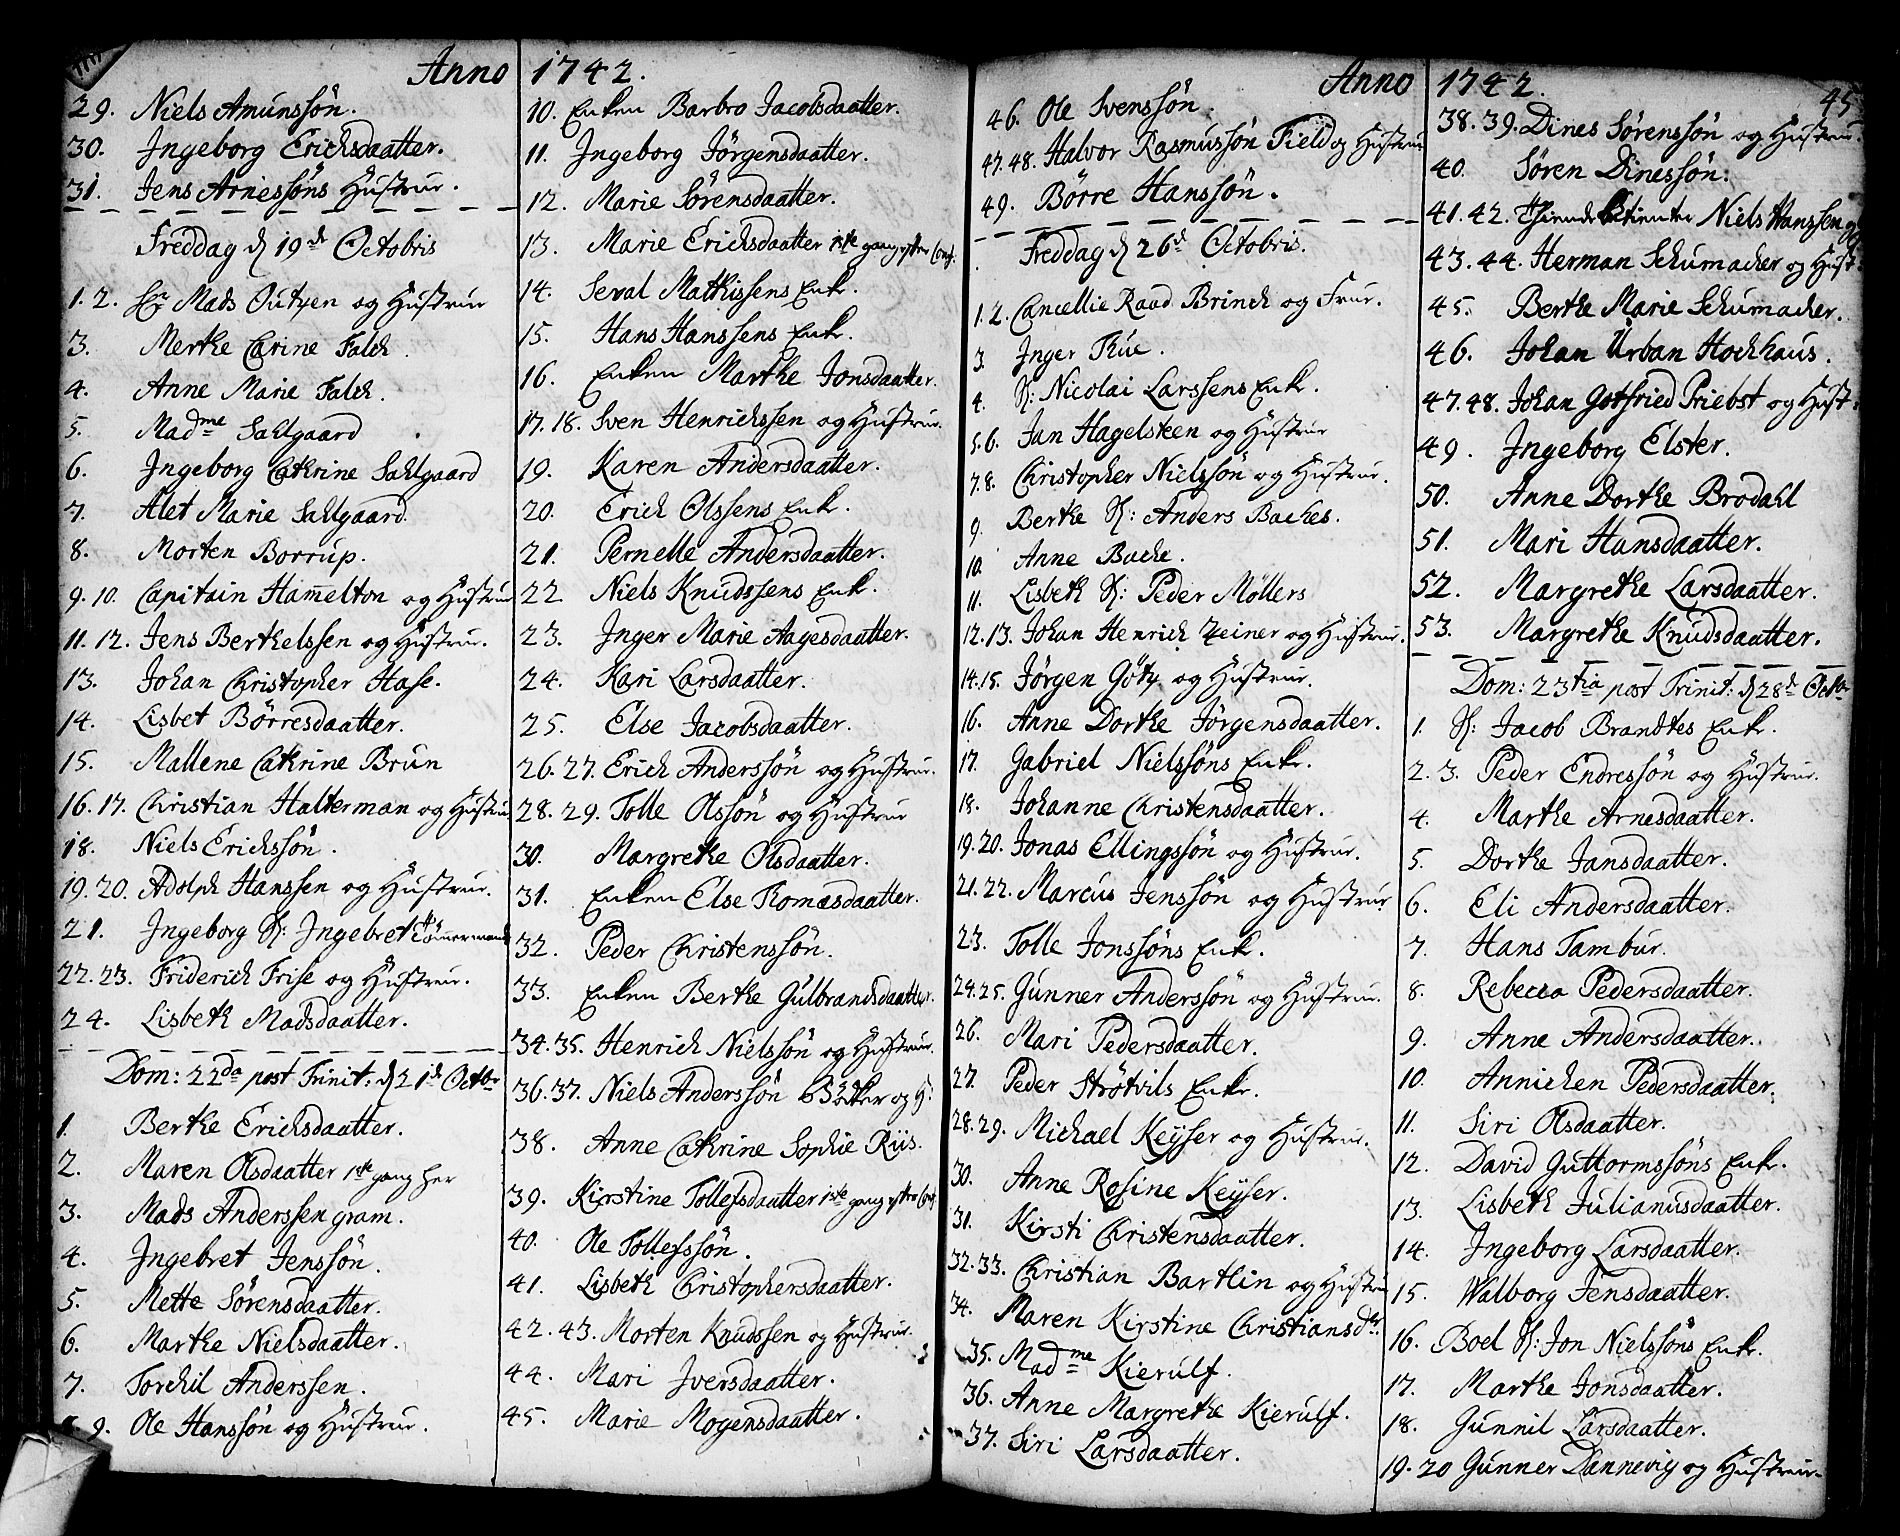 Anno 1742.
29. Niels Amunssön.
30. Jngeborg Erichsdaatter.
31. Jens Arnessöns Hustrur.
Freddag d 19de Octobris
1. 2. Sr Mads Outzen og Hustrur
3. Merthe Carine Falch.
4. Anne Marie Falch.
5. Madme Sahlgaard
6. Jngeborg Cathrine Sahlgaard
7. Alet Marie Sahlgaard.
8. Morten Borrup.
9. 10. Capitain Hamelton og Hustrur
11. 12. Jens Berthelssen og Hustrur.
13. Johan Christopher Hase.
14. Lisbet Börresdaatter.
15. Mallene Cathrine Brun
16. 17. Christian Halterman og Hustrur
18. Niels Erichssön.
19. 20. Adolph Hanssen og Hustrur.
21. Jngeborg S: Jngebret Tömmermands
22. 23. Friderich Frise og Hustrur.
24. Lisbeth Madsdaatter.
Dom: 22da post Trinit: d 21de Octbr
1. Berthe Erichsdaatter.
2. Maren Olsdaatter 1ste gang her
3. Mads Anderssen gram.
4. Jngebret Jenssön.
5. Mette Sörensdaatter.
6. Marthe Nielsdaatter.
7. Torchil Anderssen.
8. 9. Ole Hanssön og Hustrur.
10. Enken Barbro Jacobsdaatter.
11. Jngeborg Jörgensdaatter.
12. Marie Sörensdaatter.
13. Marie Erichsdaatter 1ste gang efter Conf:
14. Seval Mathissens Enk.
15. Hans Hanssens Enk.
16. Enken Marthe Jonsdaatter.
17. 18. Sven Henrichssen og Hustrur.
19. Karen Andersdaatter.
20. Erich Olssens Enk.
21. Pernelle Andersdaatter.
22. Niels Knudssens Enk.
23. Jnger Marie Aagesdaatter.
24. Kari Larsdaatter.
25. Else Jacobsdaatter.
26. 27. Erich Anderssön og Hustrur.
28. 29. Tolle Olssön og Hustrur
30. Margrethe Olsdaatter.
31. Enken Else Thomasdaatter.
32. Peder Christenssön.
33. Enken Berthe Gulbrandsdaatter.
34. 35. Henrich Nielssön og Hustrur.
36. 37. Niels Anderssön Bödker og H:
38. Anne Cathrine Sophie Riis.
39. Kirstine Tollefsdaatter 1ste gang efter Conf:
40. Ole Tollefssön.
41. Lisbeth Christophersdaatter.
42. 43. Morten Knudssen og Hustrur.
44. Mari Jversdaatter.
45. Marie Mogensdaatter.
Anno 1742.
45
46. Ole Svenssön.
47. 48. Halvor Rasmussön Field og Hustrur
49. Börre Hanssön.
Freddag d 26de Octobris.
1. 2. Cancellie Raad Brinch og Frue.
3. Jnger Thue.
4. S: Nicolai Larssens Enk.
5. 6. Jan Hagelsteen og Hustrur
7. 8. Christopher Nielssön og Hustrur.
9. Berthe S: Anders Baches.
10 Anne Bache.
11. Lisbeth S: Peder Möllers
12. 13. Johan Henrich Zeiner og Hustrur.
14. 15. Jörgen Götz og Hustrur.
16. Anne Dorthe Jörgensdaatter.
17. Gabriel Nielssöns Enk.
18. Johanne Christensdaatter.
19. 20. Jonas Ellingssön og Hustrur.
21. 22. Marcus Jenssön og Hustrur
23. Tolle Jonssöns Enk.
24. 25. Gunner Anderssön og Hustrur.
26. Mari Pedersdaatter.
27. Peder Strötvils Enk.
28. 29. Michael Keyser og Hustrur.
30. Anne Rosine Keyser.
31. Kirsti Christensdaatter.
32. 33. Christian Bartlin og Hustrur
34. Maren Kirstine Christiansdtr.
35. Madme Kierulf.
36. Anne Margrethe Kierulf.
37. Siri Larsdaatter.
38. 39. Dines Sörenssön og Hustrur.
40. Sören Dinessön.
41. 42. Niels Hanssen og
43. 44. Herman Schumacher og Hust:
45. Berthe Marie Schumacher.
46. Johan Urban Hochhaus.
47. 48. Johan Gotfried Priebst og Hust:
49. Jngeborg Elster.
50. Anne Dorthe Brodahl
51. Mari Hansdaatter.
52. Margrethe Larsdaatter.
53. Margrethe Knudsdaatter.
Dom: 23tia post Trinit: d 28de Octbr
1. S: Jacob Brandtes Enk.
2. 3. Peder Endressön og Hustrur.
4. Marthe Arnesdaatter.
5. Dorthe Jansdaatter.
6. Eli Andersdaatter.
7. Hans Tambur.
8. Rebecca Pedersdaatter.
9. Anne Andersdaatter.
10. Annichen Pedersdaatter.
11. Siri Olsdaatter.
12. David Guttormssöns Enk.
13. Lisbeth Julianusdaatter.
14. Jngeborg Larsdaatter.
15. Walborg Jensdaatter.
16. Boel S: Jon Nielssöns Enk.
17. Marthe Jonsdaatter.
18. Gunnil Larsdaatter.
19. 20 Gunner Dannevig og Hustrur.